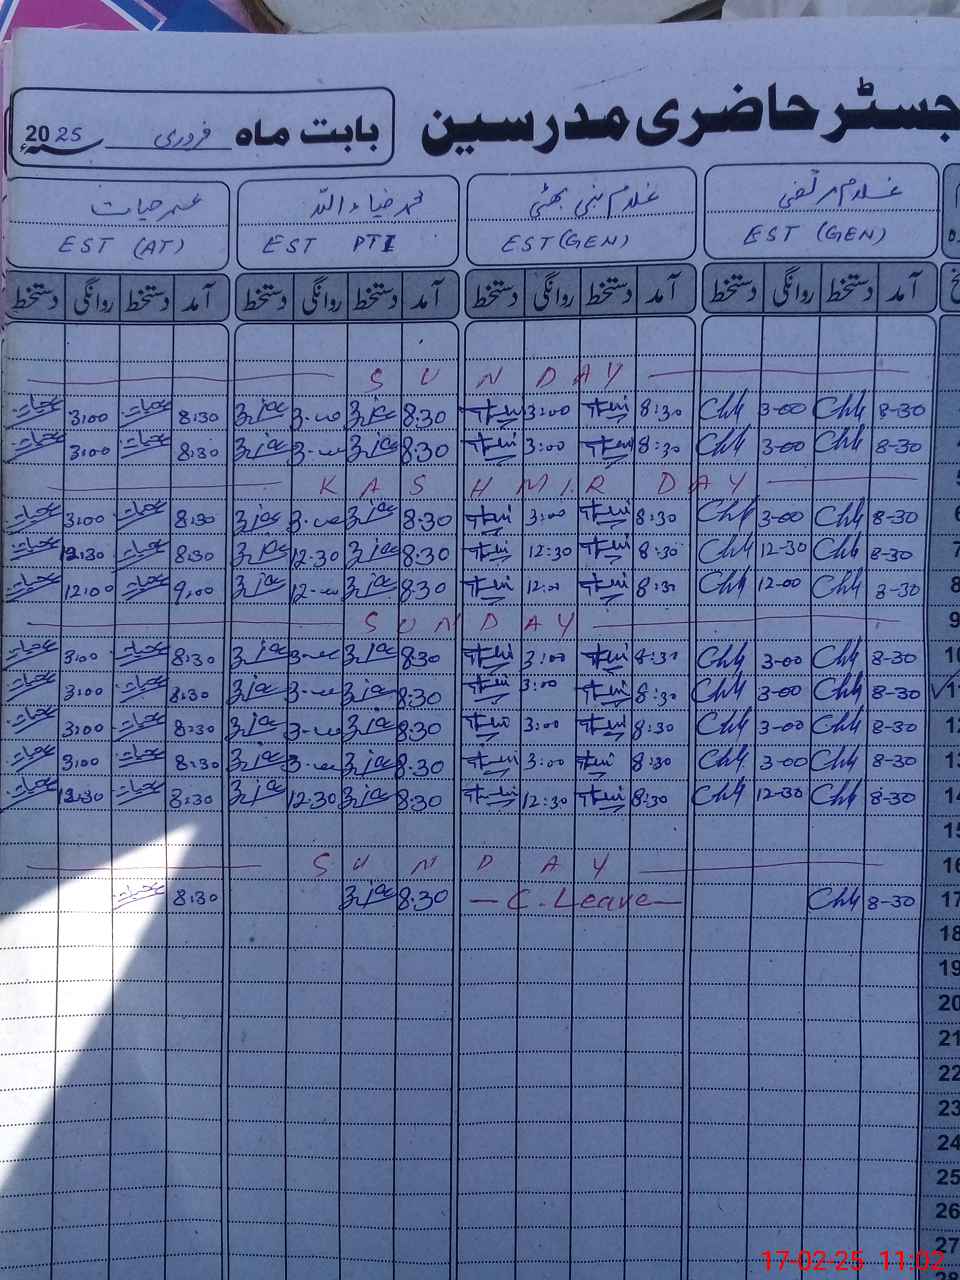 رجسٹر حاضری مدرسین بابت ماہ فروری 2025
غلام مرتضیٰ غلام نبی بھٹی محمد ضیاء اللہ عمر حیات
EST (GEN) EST (GEN) EST PTI EST (AT)
آمد دستخط روانگی دستخط آمد دستخط روانگی دستخط آمد دستخط روانگی دستخط آمد دستخط روانگی دستخط
SUNDAY
8-30 3-00 8:30 3:00 8.30 3- 8:30 3:00
8-30 3-00 8:30 3:00 8.30 3- 8:30 3:00
5 KASHMIR DAY
6 8-30 3-00 8:30 3:00 8.30 3- 8:30 3:00
7 8-30 12-30 8:30 12:30 8.30 12.30 8:30 12:30
8 8-30 12-00 8:30 12:00 8.30 12- 9:00 12:00
9 SUNDAY
10 8-30 3-00 8:30 3:00 8.30 3- 8:30 3:00
11 8-30 3-00 8:30 3:00 8.30 3- 8:30 3:00
12 8-30 3-00 8:30 3:00 8.30 3- 8:30 3:00
13 8-30 3-00 8:30 3:00 8.30 3- 8:30 3:00
14 8-30 12-30 8:30 12:30 8.30 12.30 8:30 12:30
15
16 SUNDAY
17 8-30 C. Leave 8.30 8:30
18
19
20
21
22
23
24
25
26
27
28
17-02-25 11:02